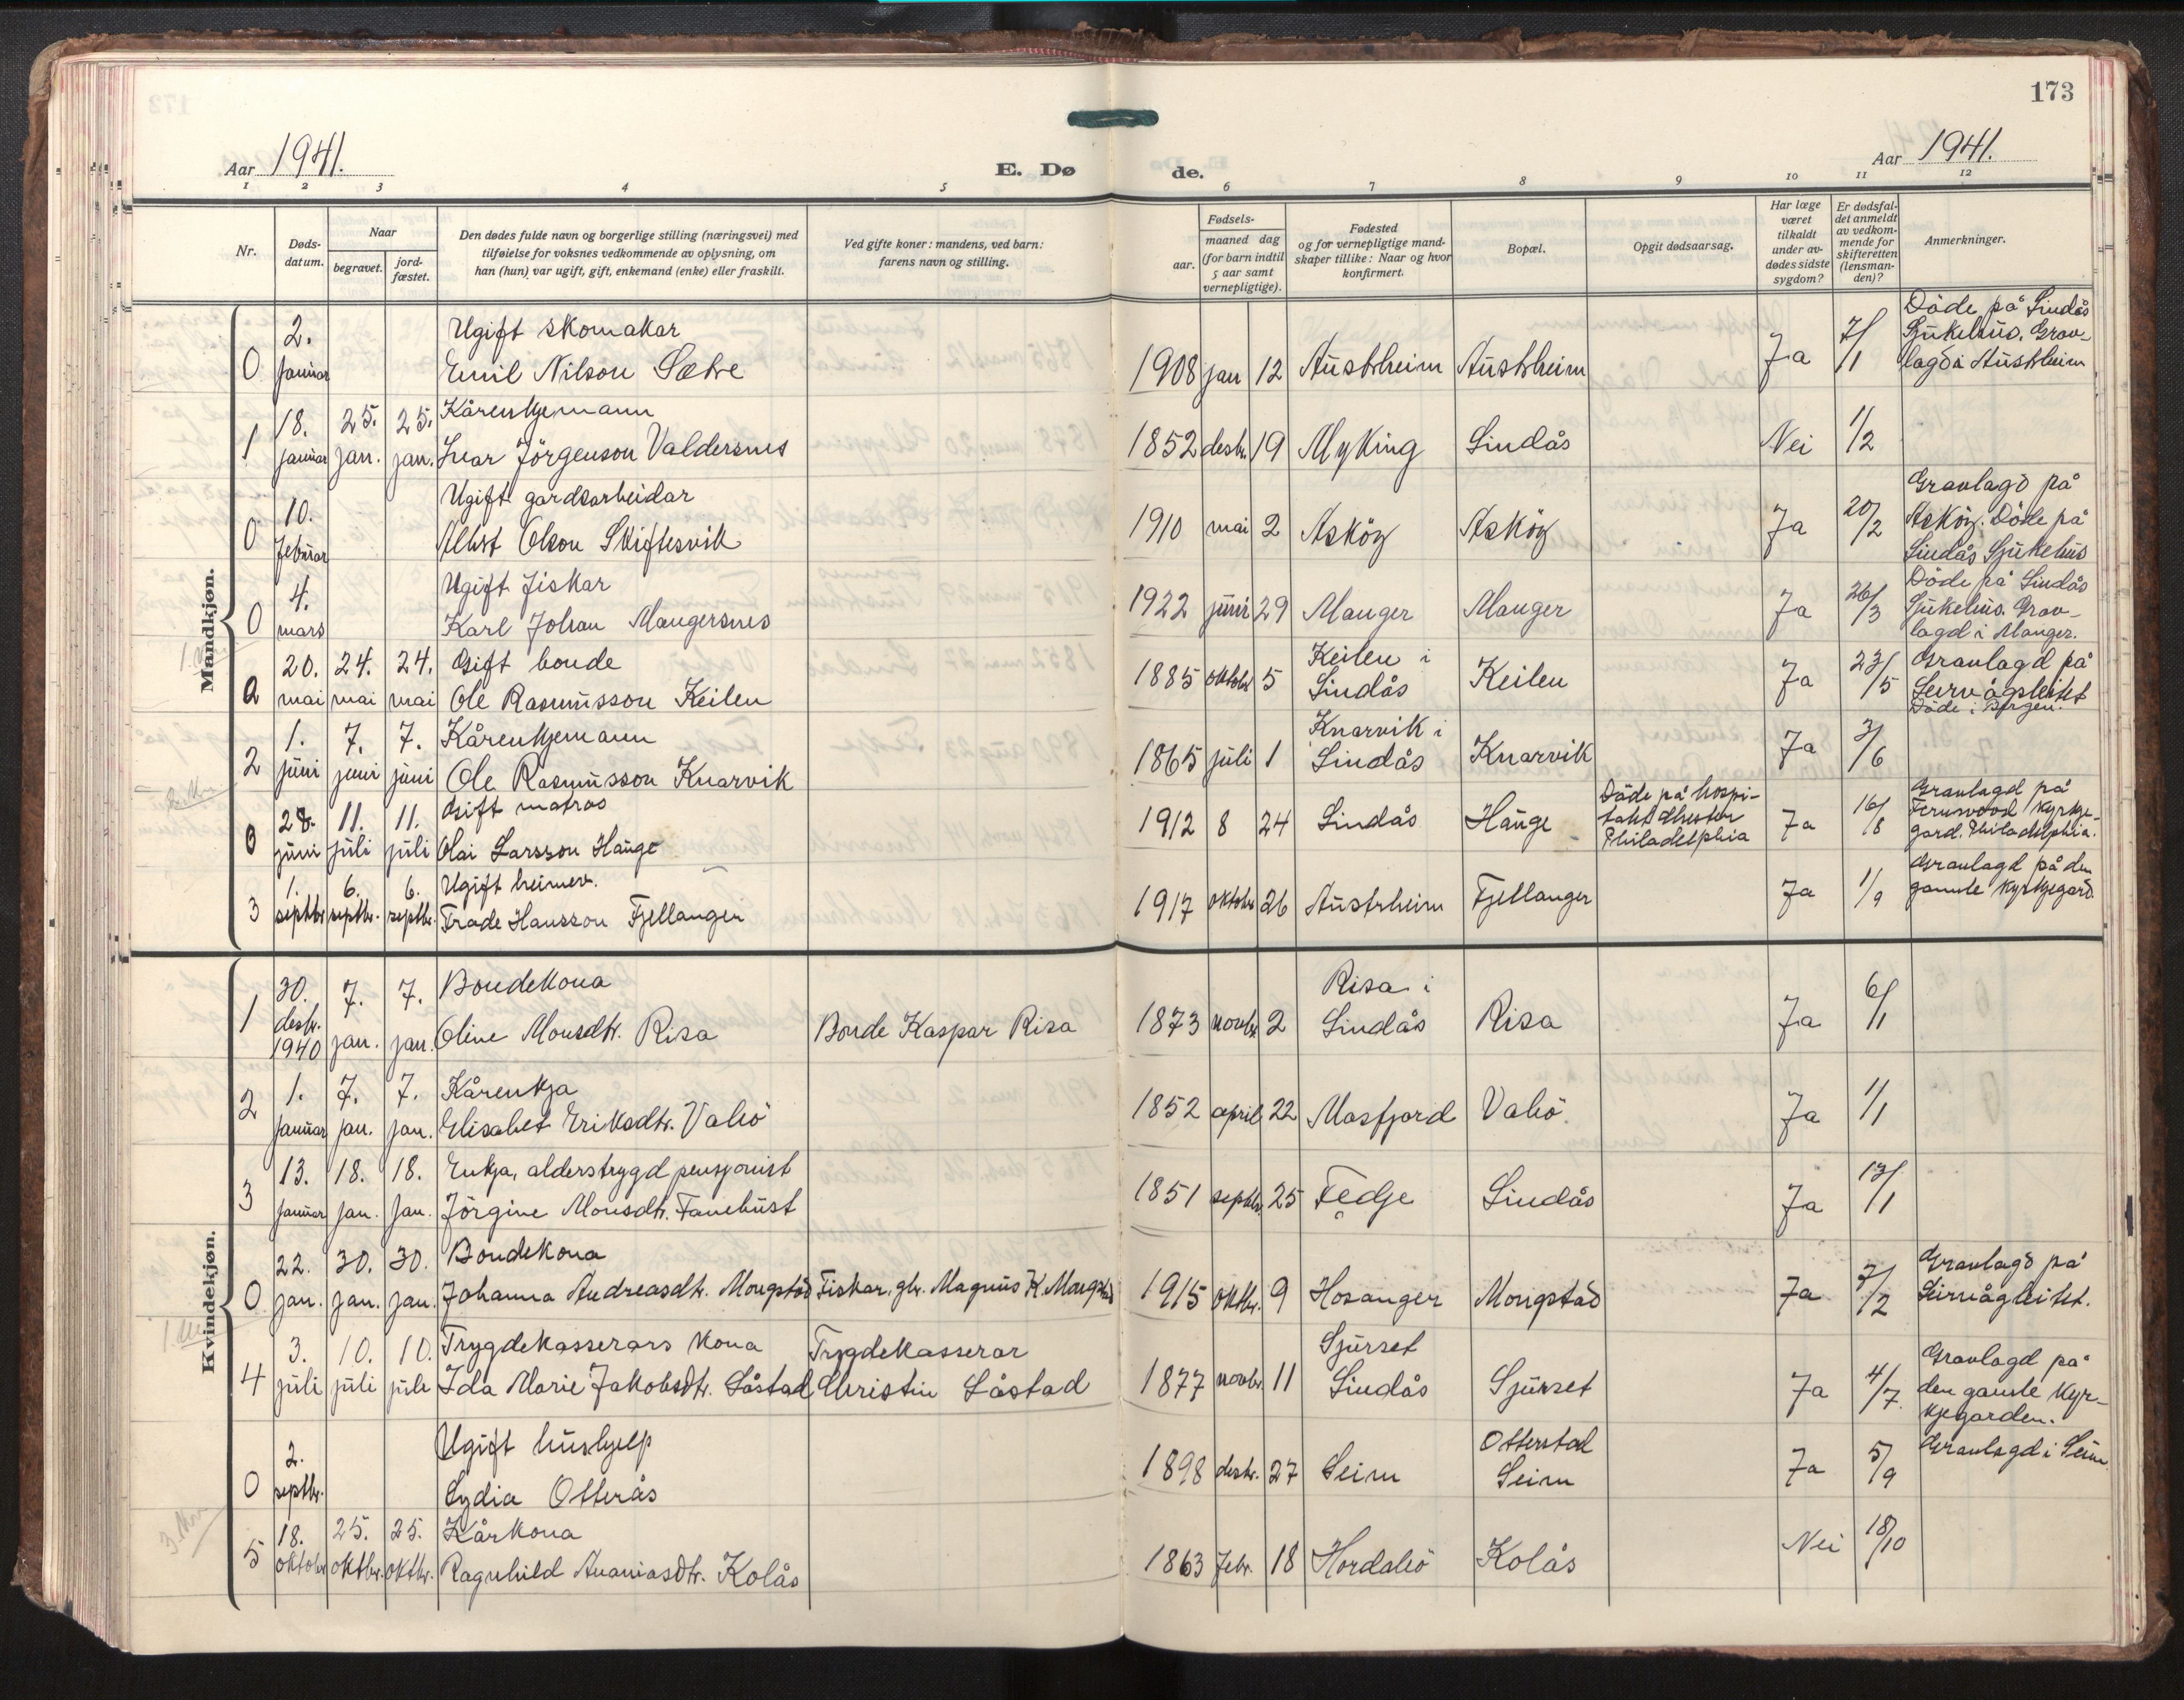 173
Aar 1941.
E. Dø
de.
Aar 1941.
1 2 3 4 5 6 7 8 9 10 11 12
Nr.
Døds-
datum.
Naar
begravet.
jord-
fæstet.
Den dødes fulde navn og borgerlige stilling (næringsvei) med
tilføielse for voksnes vedkommende av oplysning, om
han (hun) var ugift, gift, enkemand (enke) eller fraskilt.
Ved gifte koner: mandens, ved barn:
farens navn og stilling.
Fødsels-
aar.
maaned dag
(for barn indtil
5 aar samt
vernepligtige).
Fødested
og for vernepligtige mand-
skaper tillike: Naar og hvor
konfirmert.
Bopæl.
Opgit dødsaarsag.
Har læge
været
tilkaldt
under av-
dødes sidste
sygdom?
Er dødsfal-
det anmeldt
av vedkom-
mende for
skifteretten
(lensman-
den)?
Anmerkninger.
Mandkjøn.
0 2. januar
Ugift skomakar
Emil Nilson Sætre
1908 jan 12 Austrheim Austrheim Ja 7/1
Döde på Lindås
Sjukehus. Grav-
lagd i Austrheim
1 18. januar 25. jan. 25. jan.
Kårenkjemann
Ivar Jörgenson Valdersnes
1852 desbr. 19 Myking Lindås Nei 1/2
0 10. februar
Ugift gardsarbeidar
Albert Olson Skiftesvik
1910 mai 2 Asköy Asköy Ja 20/2
Gravlagd på
Asköy. Döde på
Lindås Sjukehus
0 4. mars
Ugift fiskar
Karl Johan Mangersnes
1922 juni 29 Manger Manger Ja 26/3
Döde på Lindås
Sjukehus. Grav-
lagd i Manger.
0 20. mai 24. mai 24. mai
Gift bonde
Ole Rasmusson Keilen
1885 oktober 5 Keilen i
Lindås Keilen Ja 23/5
Gravlagd på
Leirvågsleitet
Döde i Bergen.
2 1. juni 7. juni 7. juni
Kårenkjemann
Ole Rasmusson Knarvik
1865 juli 1 Knarvik i
Lindås Knarvik Ja 3/6
0 28. juni 11. juli 11. juli
Gift matros
Olai Larsson Hauge
1912 8 24 Lindås Hauge
Döde på hospi-
Philadelphia
Ja 16/8
Gravlagd på
Fernwood Kyrkje-
gard. Philadelphia.
3 1. septbr 6. septbr. 6. septbr.
Ugift heimev.
Frade Hansson Fjellanger
1917 oktober 26 Austrheim Fjellanger Ja 1/9
Gravlagd på den
gamle kyrkjegard.
Kvindekjøn.
1 30. desbr. 1940 7. jan. 7. jan.
Bondekona
Oline Monsdtr. Risa
Bonde Kaspar Risa
1873 novbr 2 Risa i
Lindås Risa Ja 6/1
2 1. januar 7. jan. 7. jan.
Kårenkja
Elisabet Eriksdtr. Valö
1852 april 22 Masfjord Valö. Ja 1/1
3 13. januar 18. jan. 18. jan.
Enkja, alderstrygd pensjonist
Jörgine Monsdtr. Fanebust
1851 septbr. 25 Fedje Lindås Ja 13/1
0 22. jan. 30. jan. 30. jan.
Bondekona
Johanna Andreasdtr. Mongstad
Fiskar, gbr. Magnus K. Mongstad
1915 oktbr. 9 Hosanger Mongstad Ja 3/2
Gravlagd på
Leirvågleitet.
4 3. juli 10. juli 10. juli
Trygdekasserars kona
Ida Marie Jakobsdtr. Låstad
Trygdekasserar
Christin Låstad
1877 novbr. 11 Sjurset
Lindås Sjurset Ja 4/7
Gravlagd på
den gamle kyr-
kjegarden.
0 2. septbr.
Ugift hushjelp
Lydia Otterås
1898 desbr. 27 Seim Otterstad
Seim Ja 5/9
Gravlagd i Seim.
5 18. oktober 25. oktbr. 25. oktbr.
Kårkona
Ragnhild Ananiasdtr. Kolås
1863 febr. 18 Hordabö Kolås Nei 18/10